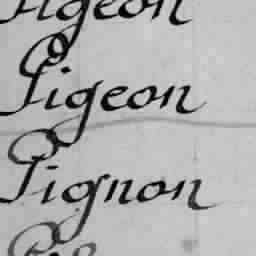 Pigeon
Pigeon
Pignon